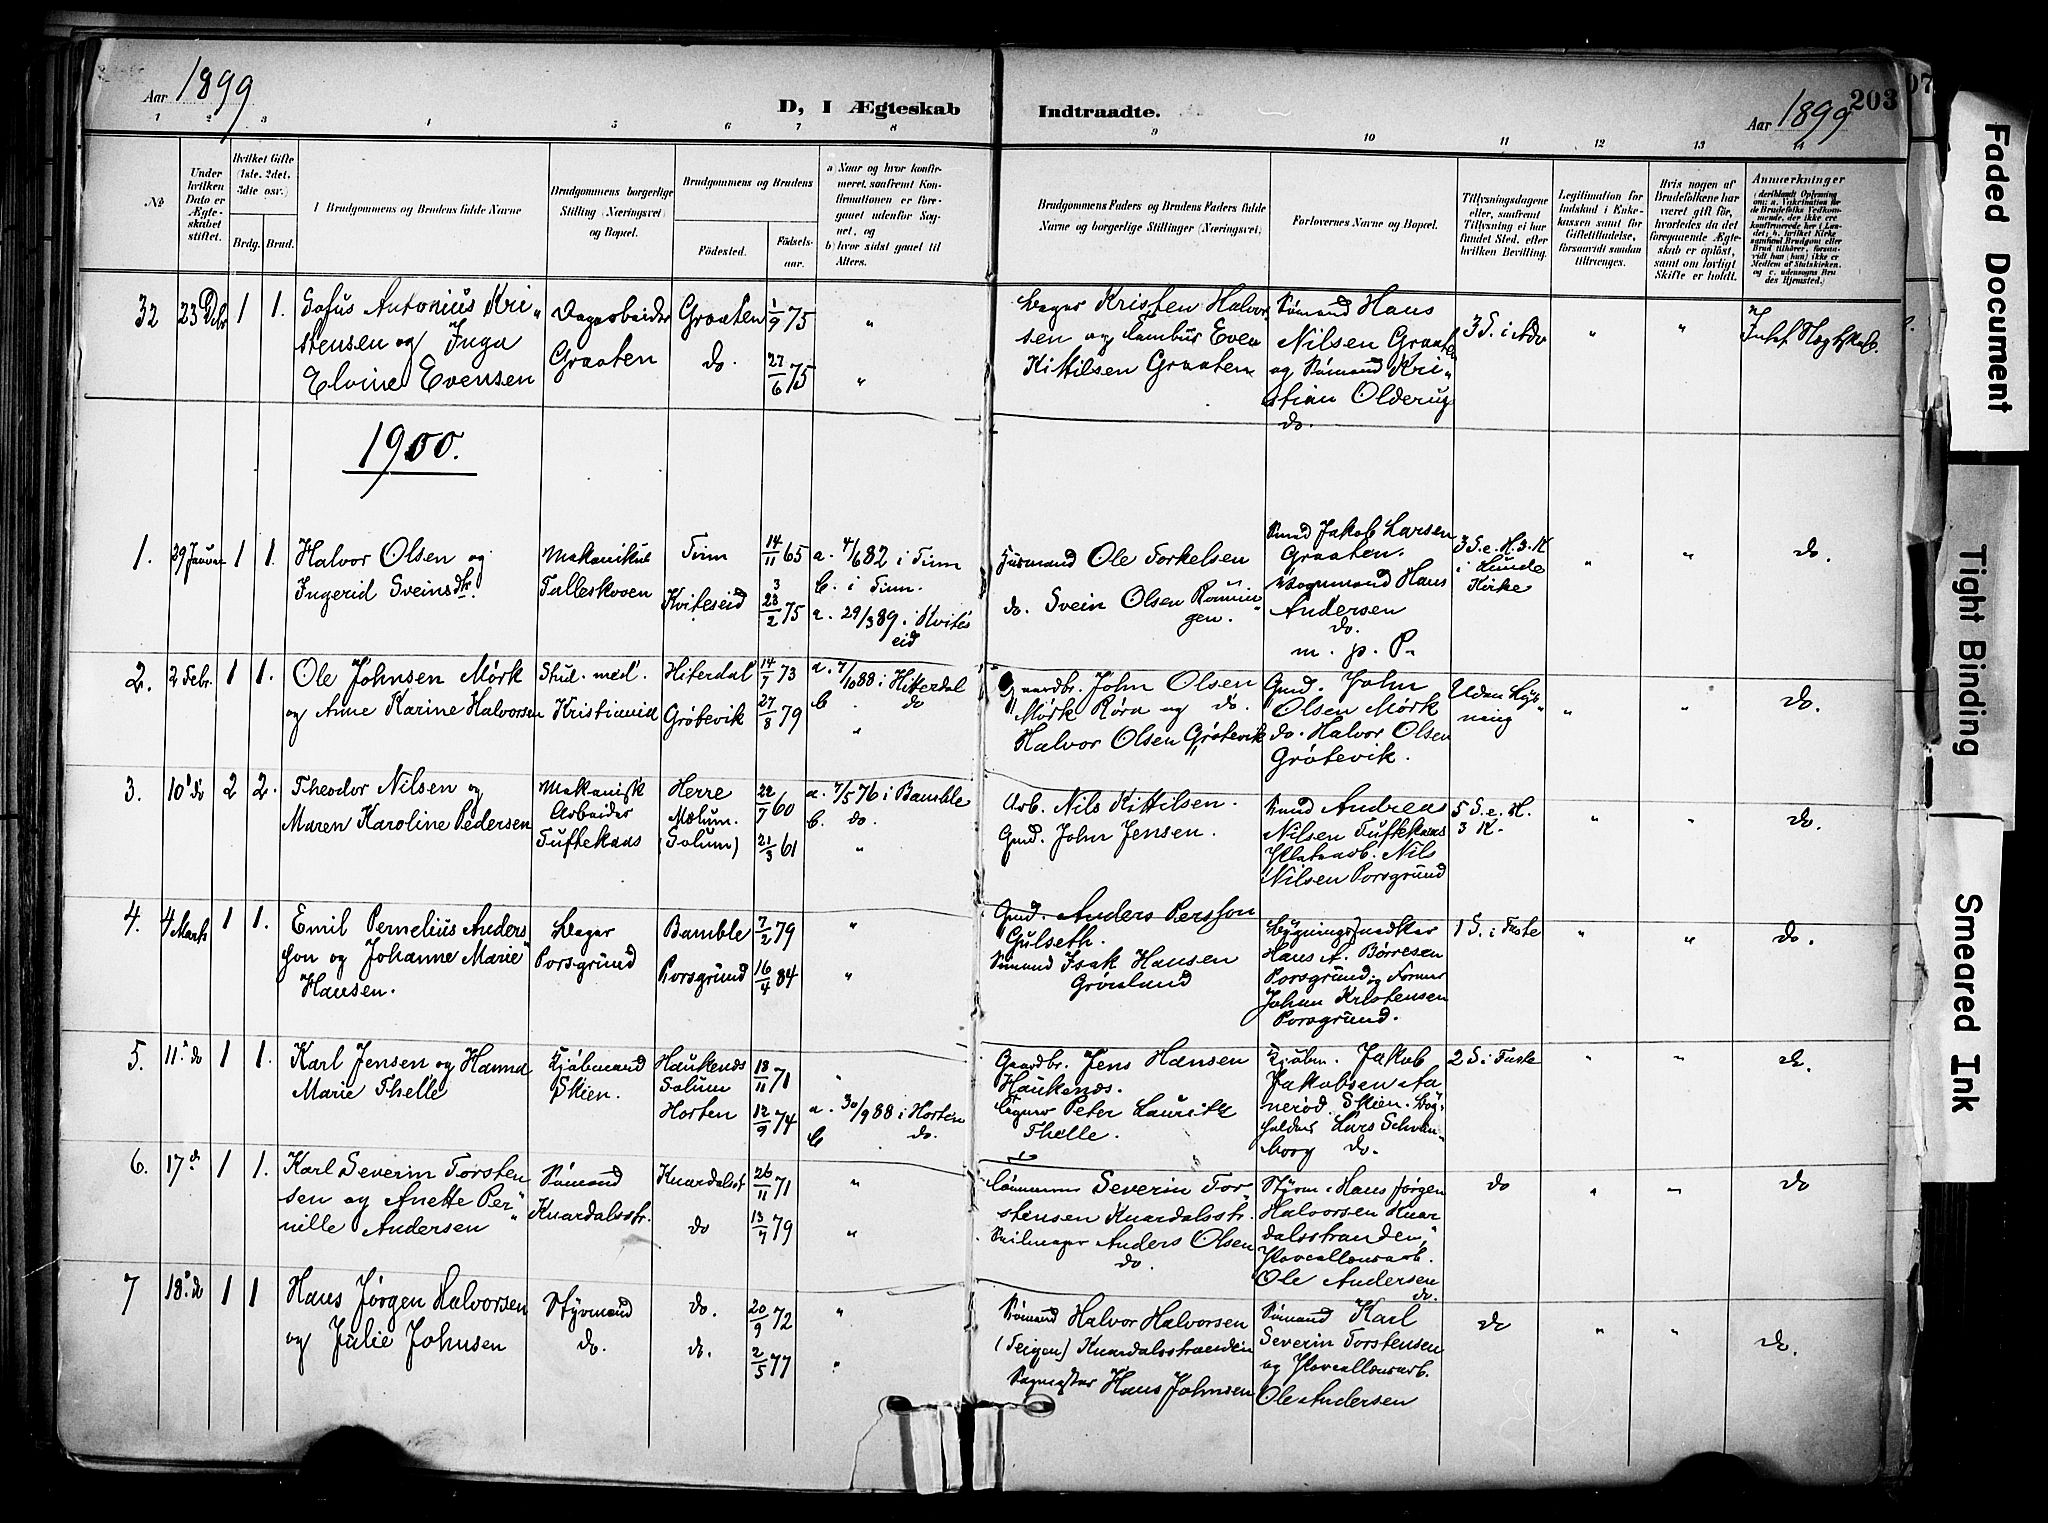 Aar 1899
D, I Ægteskab Indtraadte.
Aar 1899 203
1 2 3 4 5 6 7 8 9 10 11 12 13 14
No
Under hvilken Dato er Ægteskabet stiftet.
Hvilket Gifte (1ste, 2det, 3die osv.)
Brdg. Brud.
Brudgommens og Brudens fulde Navne
Brudgommens borgerlige Stilling (Næringsvei) og Bopæl.
Brudgommens og Brudens
Födested.
Födselsaar.
a) Naar og hvor konfirmeret, saafremt Konfirmationen er foregaaet udenfor Sognet, og
b) hvor sidst gaaet til Alters.
Brudgommens Faders og Brudens Faders fulde Navne og borgerlige Stillinger (Næringsvei)
Forlovernes Navne og Bopæl.
Tillysningsdagene eller, saafremt Tillysning ei har fundet Sted, efter hvilken Bevilling.
Legitimation for Indskud i Enkekassen samt for Giftetilladelse, forsaavidt saadan tiltrænges.
Hvis nogen af Brudefolkene har været gift før, hvorledes da det foregaaende Ægteskab er oplöst, samt om lovligt Skifte er holdt.
Anmærkninger
32 23 Dcbr 1 1. Sofus Antonius Kri-
stensen og Inga
Elvine Evensen
Dagarbeider
Graaten
Graaten
do.
1/9 75
27/6 75
Kristen Halvor-
sen og Tambur Even
Kittilsen Graaten
Sømand Hans
Nilsen Graaten
og Sømand Kri-
stian Olderup
do.
3 S. i Adv
Intet Slægtskab.
1900.
1. 29 Januar 1 1. Halvor Olsen og
Ingerid Sveinsdtr.
Mekanikus
Falleskoven
Tinn
Kviteseid
14/11 65
23/2 75
a. 4/6 82 i Tinn
b. i Tinn.
a. 29/3 89 i Hvites
eid
Husmand Ole Torkelsen
do. Svein Olsen
Smed Jakob Larsen
Graaten.
Vognmand Hans
Andersen
do.
m. p. P.
3 S. e. H. 3. K
i Lunde
Kirke
do.
2. 2 Febr. 1 1. Ole Johnsen Mørk
og Anne Karine Halvorsen
Stud. med.
Kristiania
Hiterdal
Grøtevik
14/7 73
27/8 79
a. 7/10 88 i Hiterdal
b. do
Gaardbr. John Olsen
Mørk Røra og do.
Halvor Olsen Grøtevik
Gmd. John
Olsen Mørk
do. Halvor Olsen
Grøtevik.
Uden Lys-
ning
do.
3. 10 do 2 2. Theodor Nilsen og
Maren Karoline Pedersen
Mekanisk
Arbeider
Tuftekaas
Herre
Mælum.
(Solum)
22/7 60
21/3 61
a. 7/5 76 i Bamble
b. do.
Arb. Nils Kittilsen.
Gmd. John Jensen.
Smed Andreas
Nilsen Tuftekaas
Nils
Nilsen Porsgrund
5 S. e. H.
3 K.
do.
4. 4 Marts 1 1. Emil Pernelius Anders
son og Johanne Marie
Hansen.
Bager
Porsgrund
Bamble
Porsgrund
7/2 79
16/4 84
Gmd. Anders Persson
Gulseth.
Sømand Isak Hansen
Grønlund
Bygningssnedker
Hans A. Børresen
Porsgrund og Former
Johan Kristensen
Porsgrund.
1 S. i Faste
do.
5. 11 do 1 1. Karl Jensen og Hanna
Marie Thelle
Kjøbmand
Skien.
Haukenes
Solum
Horten
18/11 71
12/9 74
a. 30/9 88 i Horten
b. do.
Gaardbr. Jens Hansen
Haukenæs.
Peter Lauritz
Thelle.
Kjøbm. Jakob
Jakobsen Aa-
nerød. Skien. Bog-
holder Lars Schøn-
borg do.
2 S i Faste
do.
6. 17 do 1 1. Karl Severin Torsten
sen og Anette Per-
nille Andersen
Sømand
Knardalsstr.
Knardalsst
do
26/11 71
13/7 79
Tømmerm Severin Tor-
stensen Knardalsstr.
Seilmager Anders Olsen
do.
Styrm. Hans Jørgen
Halvorsen Knar
dalsstranden,
Porcellænsarb.
Ole Andersen
do.
do
do
7 18 do 1 1 Hans Jørgen Halvorsen
og Julie Johnsen
Styrmand
do.
do.
do.
20/9 72
2/5 77
Sømand Halvor Halvorsen
(Teigen) Knardalsstranden
Hans Johnsen
Sømand Karl
Severin Torstensen
og Porcellænsarb.
Ole Andersen
do
do.
Faded Document
Tight Binding
Smeared Ink